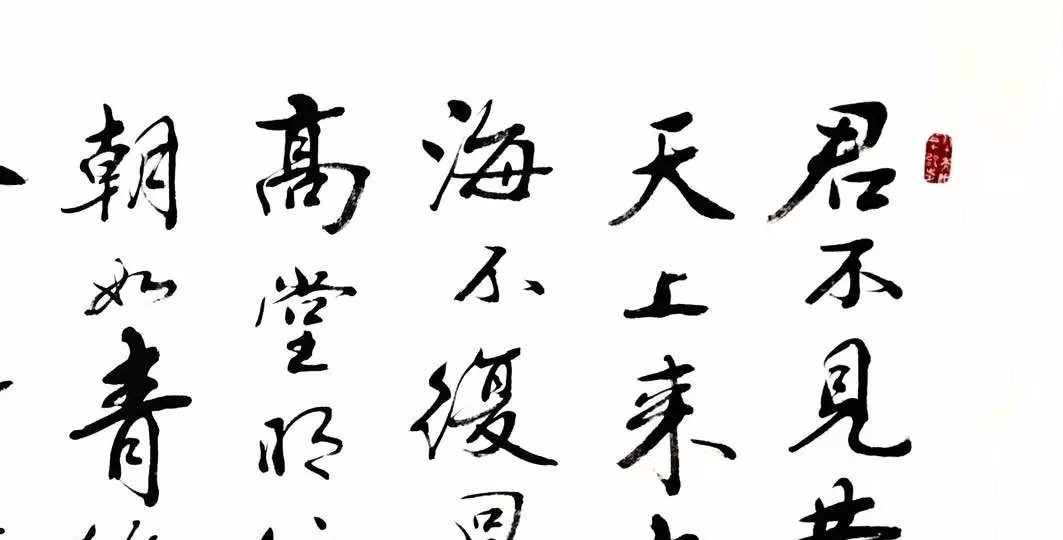 君不見
天上來
海不復回
高堂明
朝如青